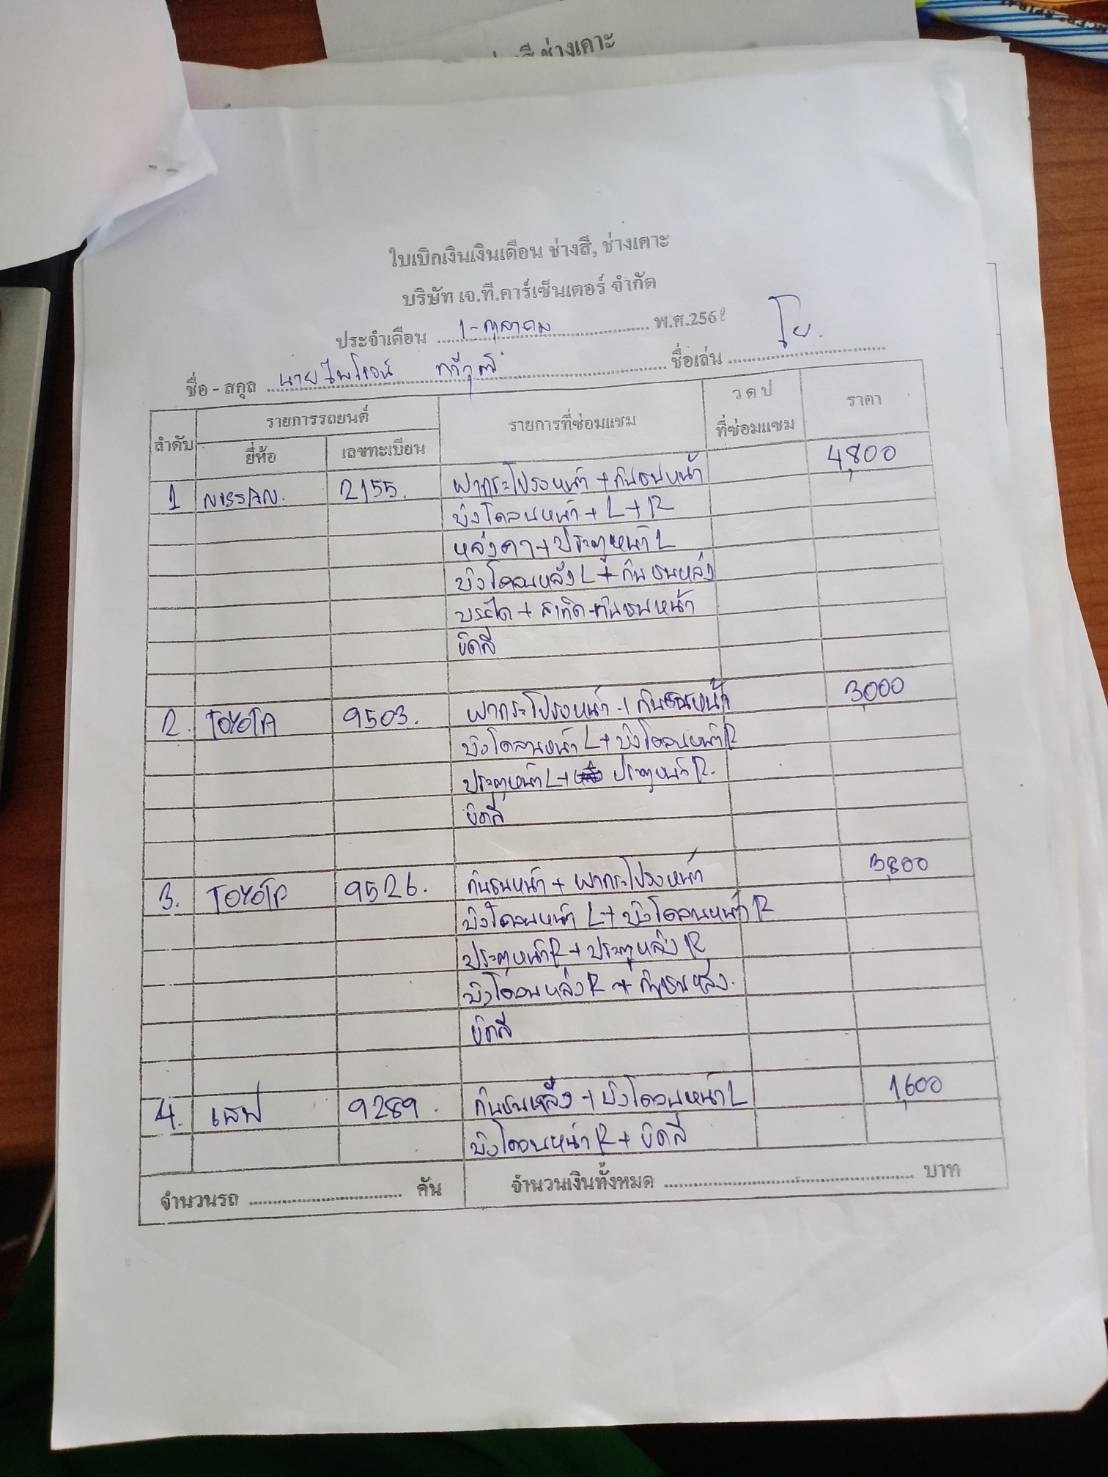 สี ช่างเคาะ
ใบเบิกเงินเงินเดือน ช่างสี, ช่างเคาะ
บริษัท เจ.ที.คาร์เซ็นเตอร์ จำกัด
ประจำเดือน 1-ตุลาคม พ.ศ.2568
ชื่อ - สกุล นายไพโรจน์ ชื่อเล่น โย.
ลำดับ รายการรถยนต์ รายการที่ซ่อมแซม ว ด ป ที่ซ่อมแซม ราคา
ยี่ห้อ เลขทะเบียน
1 NISSAN. 2155. ฝากระโปรงหน้า + กันชนหน้า 4,800
บังโคลนหน้า + L + R
หลังคา + ประตูหน้า L
บังโคลนหลัง L + กันชนหลัง
บรรได + สาทิต-กันชนหน้า
ขัดสี
2. TOYOTA 9503. ฝากระโปรงหน้า + กันชนหน้า 3,000
บังโคลนหน้า L + บังโคลนหน้า R
ประตูหน้า L + ประตูหน้า R.
ขัดสี
3. TOYOTA 9526. กันชนหน้า + ฝากระโปรงหน้า 3,800
บังโคลนหน้า L + บังโคลนหน้า R
ประตูหน้า R + ประตูหลัง R
บังโคลนหลัง R + กันชนหลัง.
ขัดสี
4. เชฟ 9289. กันชนหลัง + บังโคลนหน้า L 1,600
บังโคลนหน้า R + ขัดสี
จำนวนรถ ........ คัน จำนวนเงินทั้งหมด ........ บาท